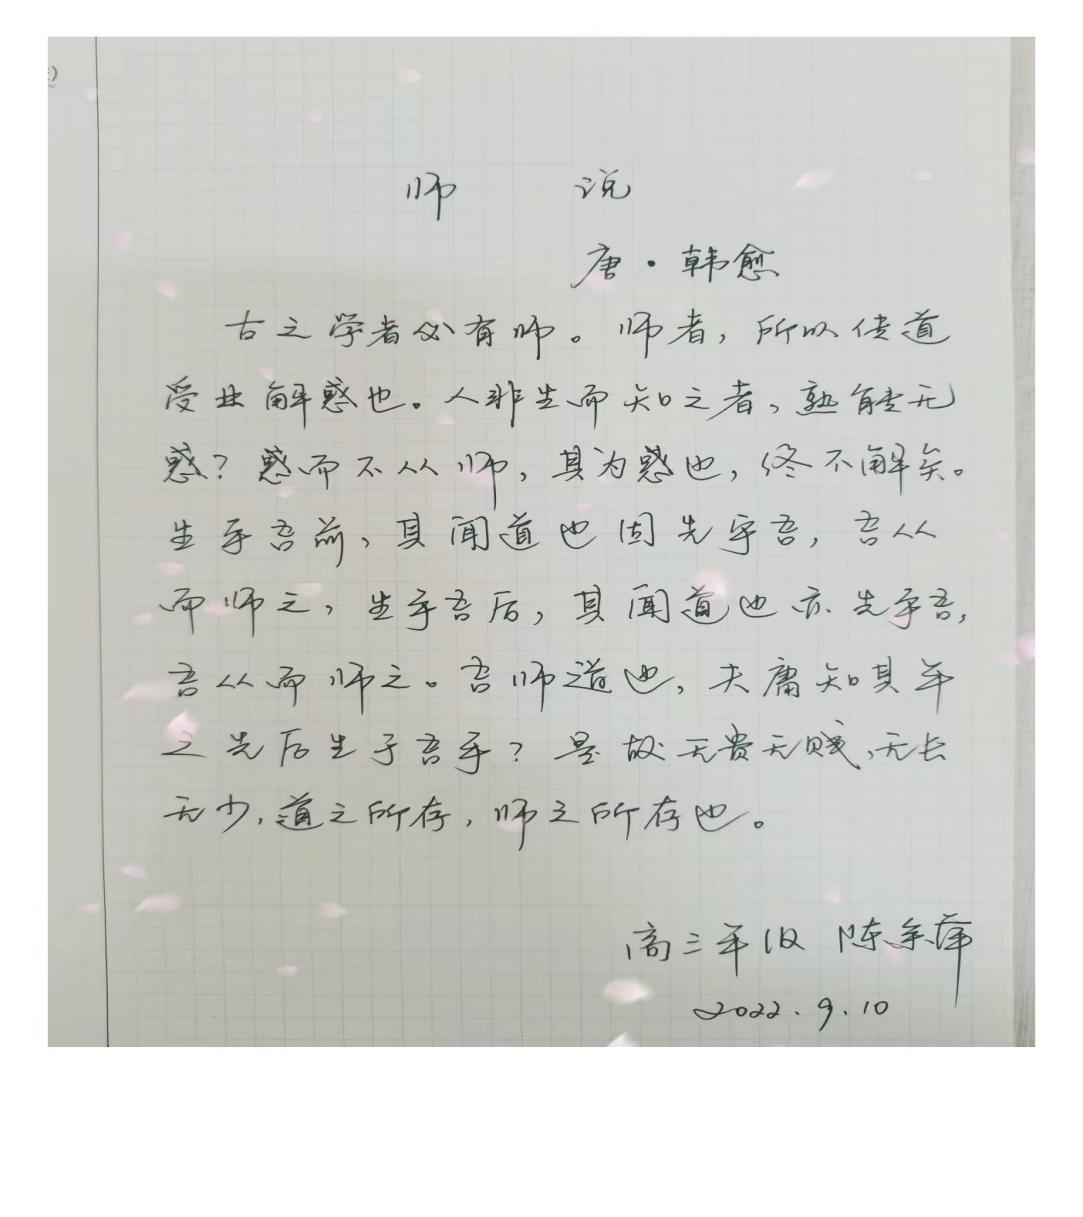 师 说
唐·韩愈
古之学者必有师。师者，所以传道
受业解惑也。人非生而知之者，孰能无
惑？惑而不从师，其为惑也，终不解矣。
生乎吾前，其闻道也固先乎吾，吾从
而师之，生乎吾后，其闻道也亦先乎吾，
吾从而师之。吾师道也，夫庸知其年
之先后生于吾乎？是故无贵无贱，无长
无少，道之所存，师之所存也。
高三年级 陈余萍
2022.9.10